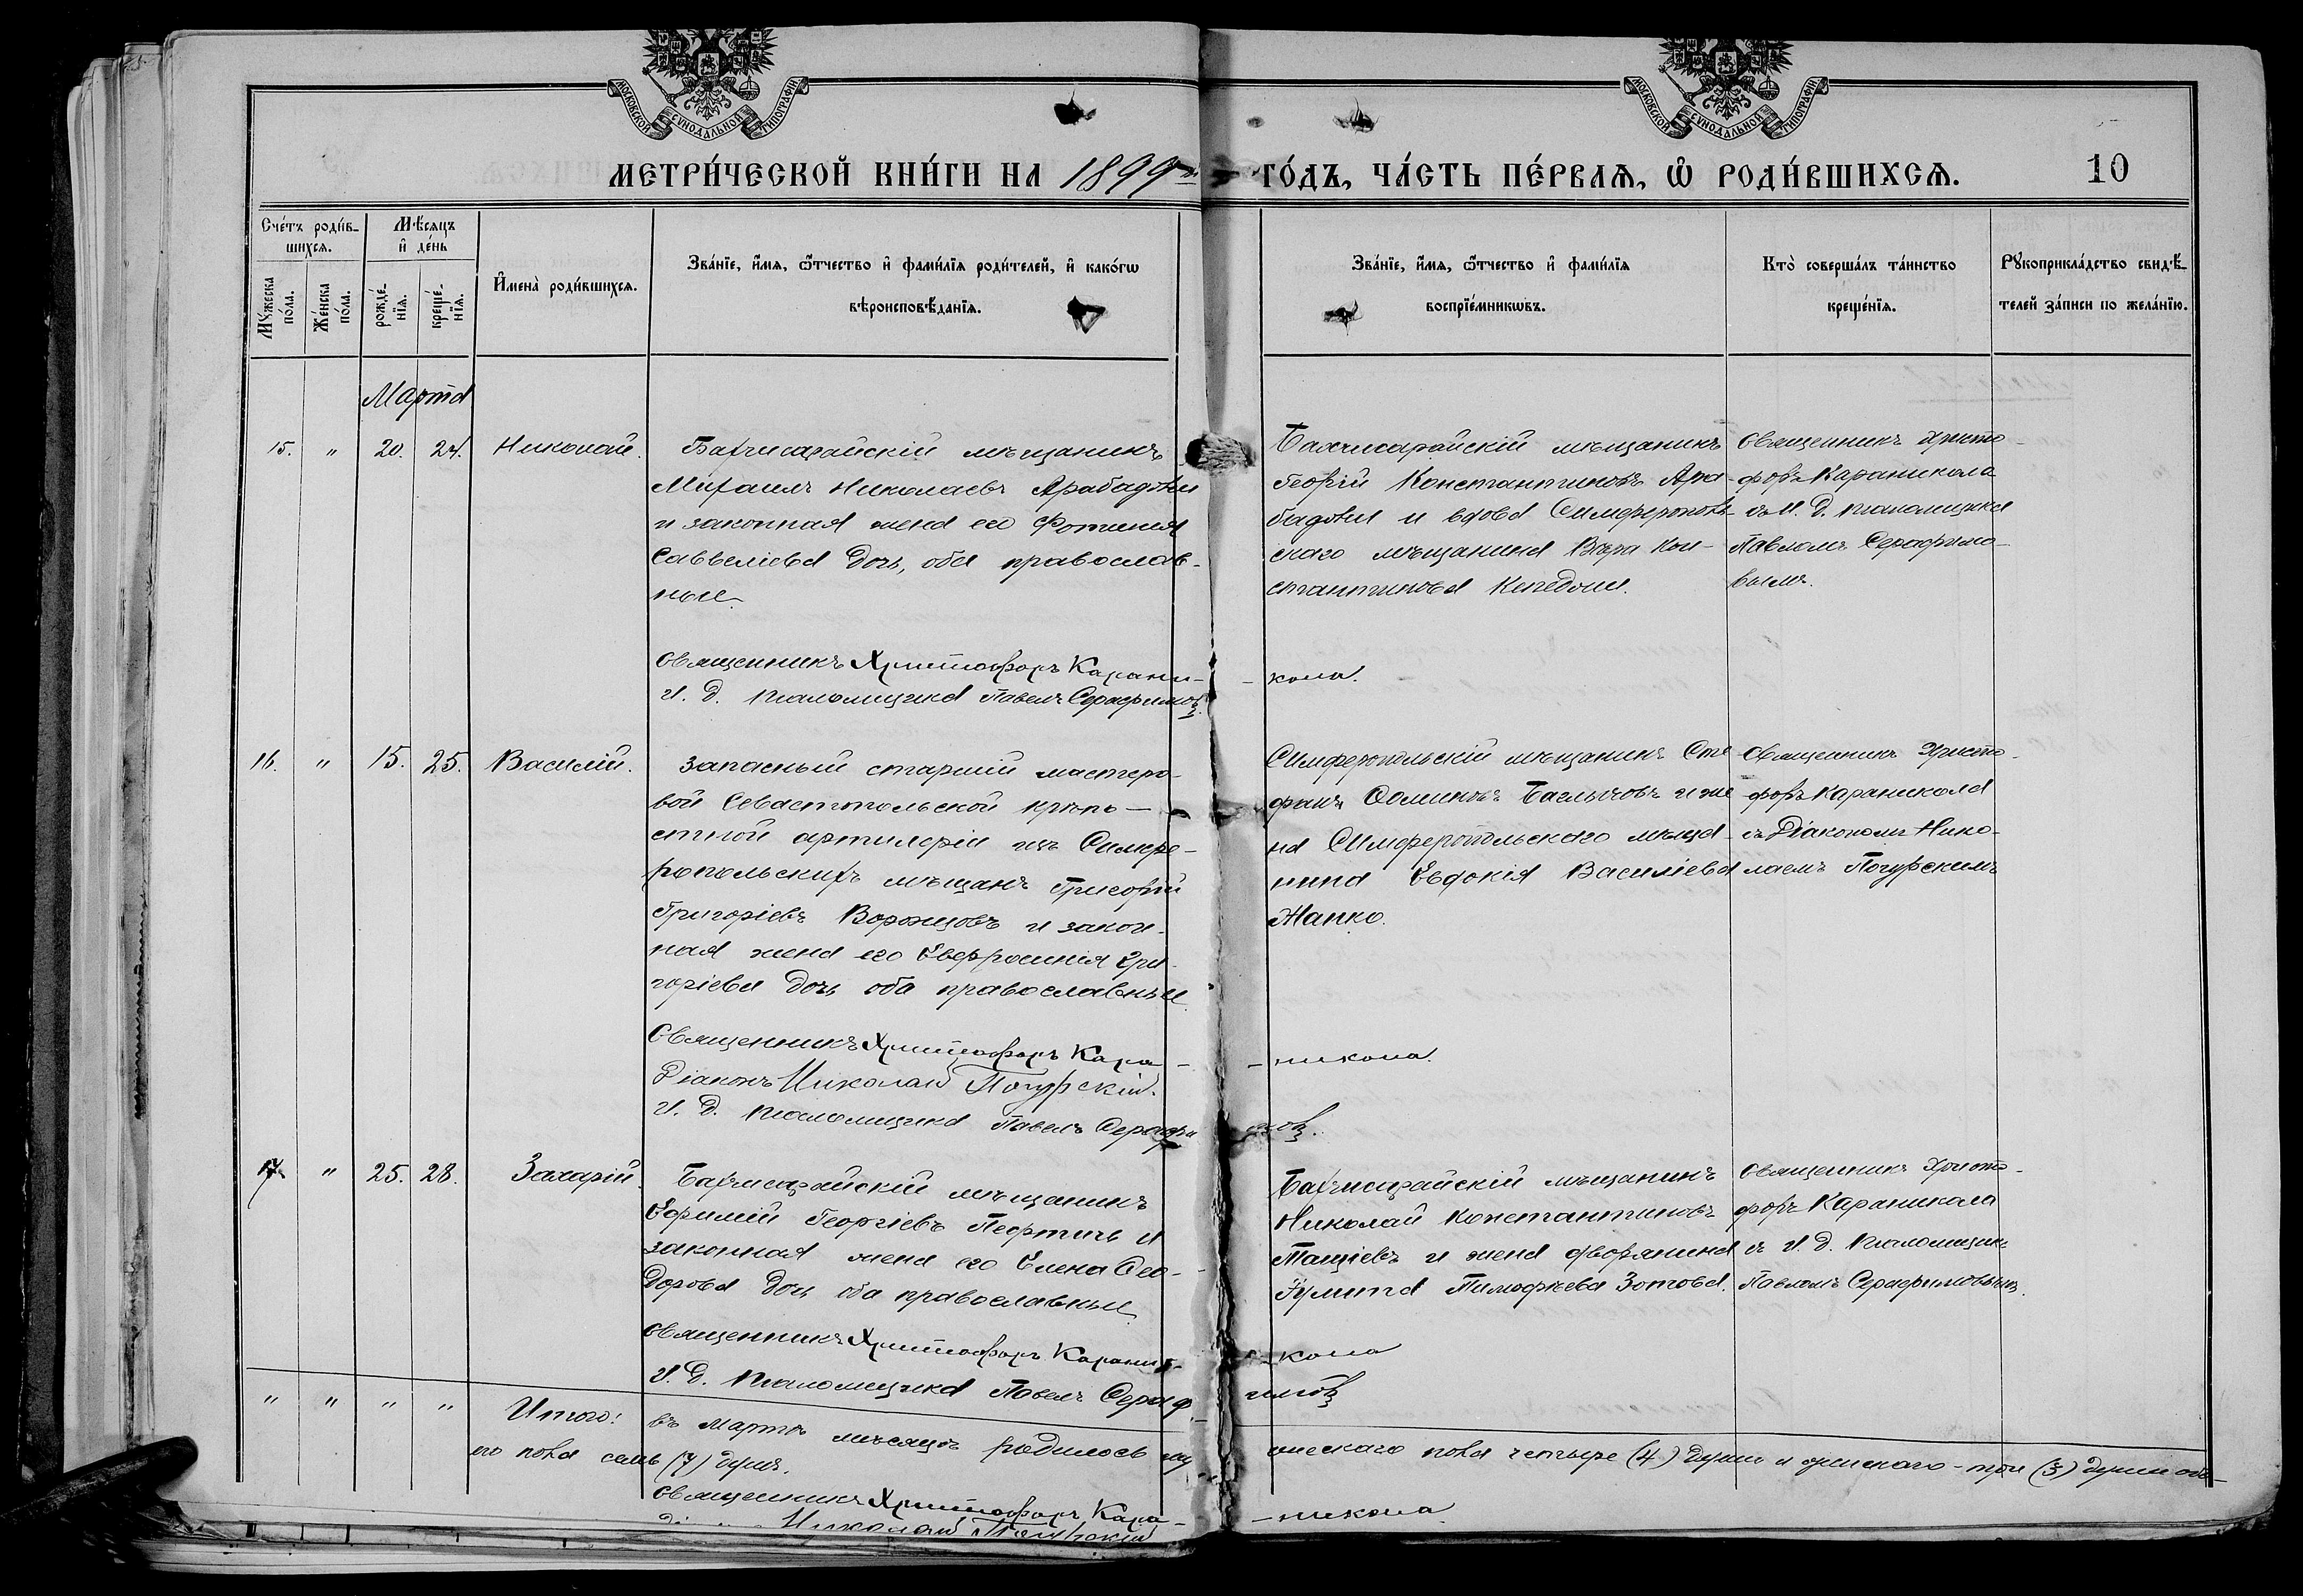 МОСКОВСКОЙ СѴНОДАЛЬНОЙ ТИПОГРАФІИ
МОСКОВСКОЙ СѴНОДАЛЬНОЙ ТИПОГРАФІИ
МЕТРИ́ЧЕСКОЙ КНИ́ГИ НА 1899й ГО́ДЪ, ЧА́СТЬ ПЕ́РВАѦ, Ѡ҆ РОДИ́ВШИХСѦ.
10
Сче́тъ роди́в-
шихсѧ.
Мѣ́сѧцъ
и҆ де́нь
Мꙋ́жеска
по́ла.
Же́нска
по́ла.
рожде́-
нїѧ.
креще́-
нїѧ.
И҆мена̀ роди́вшихсѧ.
Зва́нїе, и҆́мѧ, ѻ҆́тчество и҆ фами́лїѧ роди́телей, и҆ како́гѡ
вѣроисповѣ́данїѧ.
Зва́нїе, и҆́мѧ, ѻ҆́тчество и҆ фами́лїѧ
воспрїе́мникѡвъ.
Кто̀ соверша́лъ та́инство
креще́нїѧ.
Рꙋкоприкла́дство свидѣ́-
телей за́писи по жела́нїю.
Марта
15. " 20. 24. Николай.
Бахчисарайскій мѣщанинъ
Михаилъ Николаевъ Арабаджи
и законная жена его Фотинія
Саввеліева дочь, оба православ-
ные.
Бахчисарайскій мѣщанинъ
Георгій Константиновъ Ара-
баджи и вдова Симферополь-
скаго мѣщанина Вѣра Кон-
стантинова
Священникъ Христо-
форъ Караникола
съ И. Д. псаломщика
Павломъ Серафимо-
вымъ.
Священникъ Христофоръ Карани-
-кола.
И. Д. псаломщика Павелъ Серафимовъ.
16. " 15. 25. Василій.
Запасный старшій мастеро-
вой Севастопольской крѣпо-
стной артилеріи изъ Симфе-
ропольскихъ мѣщанъ Григорій
Григоріевъ Воронцовъ и закон-
ная жена его Евфросинія Гри-
горіева дочь оба православные
Симферопольскій мѣщанинъ Сте-
фанъ и же-
на Симферопольскаго мѣща-
нина Евдокія Василіева
Жапко.
Священникъ Христо-
форъ Караникола
съ Діакономъ Нико-
лаемъ Погурскимъ
Священникъ Христофоръ Кара-
-никола.
Діаконъ Николай Погурскій.
И. Д. псаломщика Павелъ Серафи
мовъ.
17. " 25. 28. Захарій.
Бахчисарайскій мѣщанинъ
Ефимій Георгіевъ и
законная жена его Елена Ѳео-
дорова дочь оба православные
Бахчисарайскій мѣщанинъ
Николай Константиновъ
и жена дворянина
Тимофѣева Зотова.
Священникъ Христо-
форъ Караникола
съ И. Д. псаломщик.
Павломъ Серафимовымъ.
Священникъ Христофоръ Карани-
-кола
И. Д. псаломщика Павелъ Сераф-
имовъ
" " " " Итого: въ мартѣ мѣсяцѣ родилось му
жескаго пола четыре (4) души и женскаго - три (3) души обо-
его пола семь (7) душъ.
Священникъ Христофоръ Кара-
-никола
Николай Погурскій